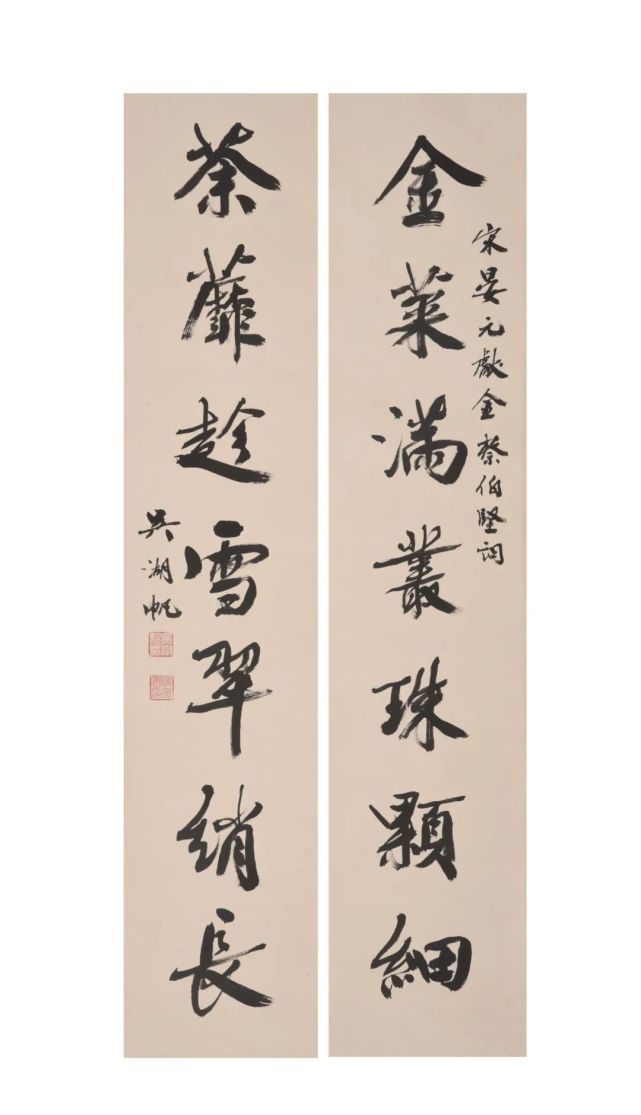 宋晏元獻金蔡伯堅詞
金菊滿叢珠顆細
荼蘼趁雪翠綃長
吳湖帆